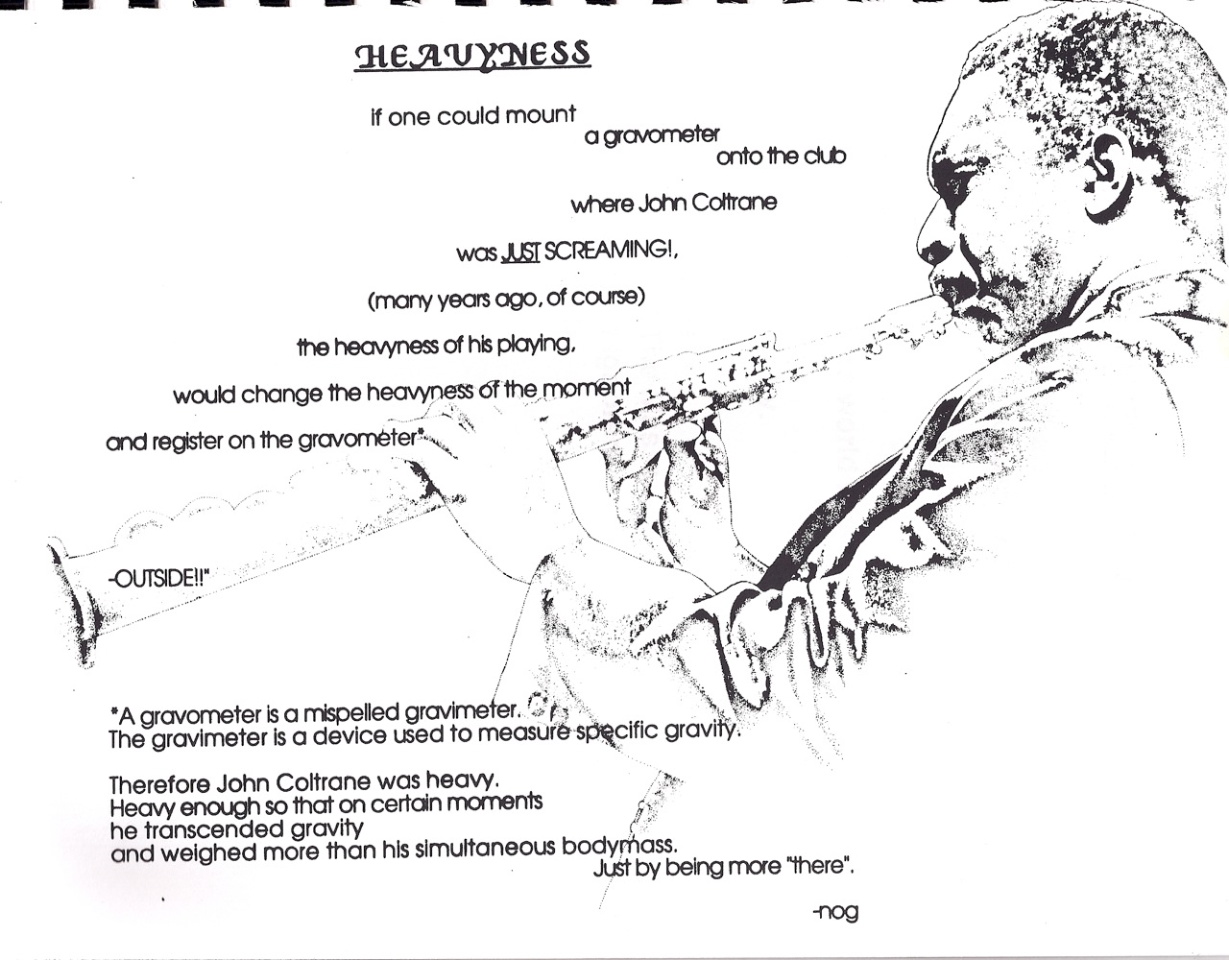 HEAVYNESS
If one could mount
a gravometer
onto the club
where John Coltrane
was JUST SCREAMING!,
(many years ago, of course)
the heavyness of his playing,
would change the heavyness of the moment
and register on the gravometer*
-OUTSIDE!!"
*A gravometer is a mispelled gravimeter.
The gravimeter is a device used to measure specific gravity.
Therefore John Coltrane was heavy.
Heavy enough so that on certain moments
he transcended gravity
and weighed more than his simultaneous bodymass.
Just by being more "there".
-nog